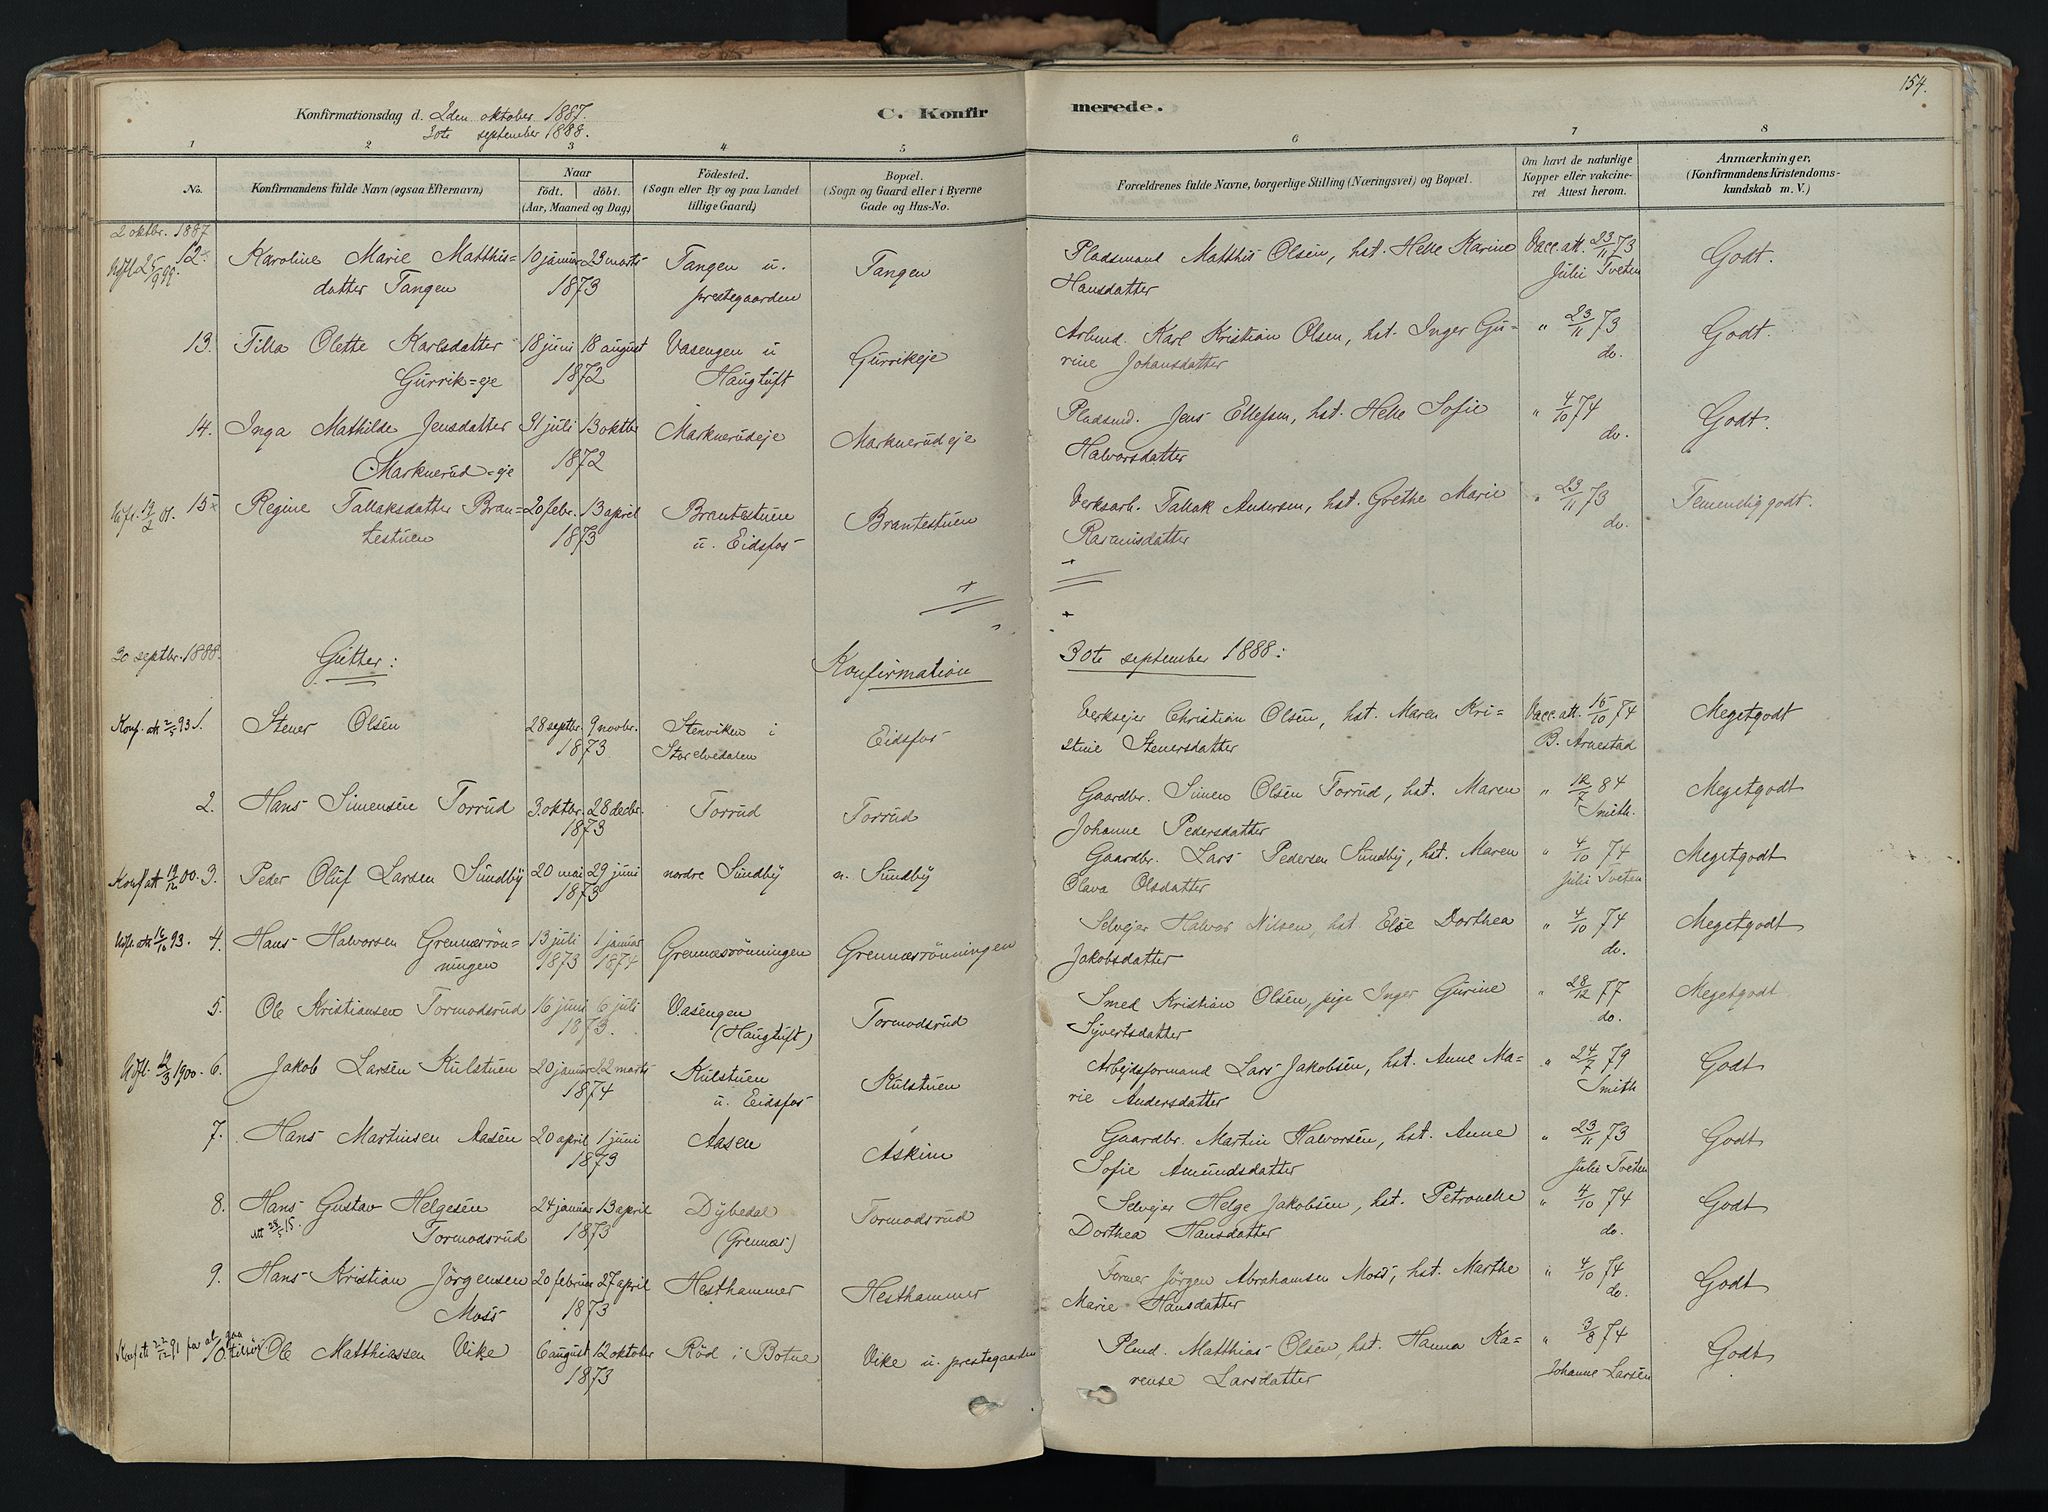 154.
Konfirmationsdag d. 2den oktober 1887.
30te september 1888.
C. Konfirmerede.
1 2 3 4 5 6 7 8
No.
Konfirmandens fulde Navn (ogsaa Efternavn)
Naar
födt. döbt.
(Aar, Maaned og Dag.)
Födested.
(Sogn eller By og paa Landet
tillige Gaard.)
Bopæl.
(Sogn og Gaard eller i Byerne
Gade og Hus-No.
Forældrenes fulde Navne, borgerlige Stilling (Næringsvei) og Bopæl.
Om havt de naturlige
Kopper eller vakcine-
ret Attest herom.
Anmærkninger,
(Konfirmandens Kristendoms-
kundskab m. V.)
2 oktbr. 1887
12. Karoline Marie Matthis- 10 januar 23 marts Tangen u. Tangen Pladsmand Matthis Olsen, hst. Helle Karine Vacc. att. 23/11 73 Godt.
datter Tangen 1873 prestegaarden Hansdatter Julie Tveten
13. Tilla Olette Karlsdatter 18 juni 18 august Vasengen u Gurrikeje Arbmd. Karl Kristian Olsen, hst. Inger Gu- " 23/11 73 Godt.
Gurrik=eje 1872 Haugtuft rine Johansdatter do.
14. Inga Mathilde Jensdatter 31 juli 13 oktbr Marknerudeje Marknerudeje Pladsmd. Jens Ellefsen, hst. Helle Sofie " 4/10 74 Godt.
Marknerud=eje 1872 Halvorsdatter do.
15 Regine Tallaksdatter Bran- 20 febr. 13 april Brantestuen Brantestuen Verksarb. Tallak Andersen, hst. Grethe Marie " 23/11 73 Temmelig godt.
testuen 1873 u. Eidsfos Rasmusdatter do.
30 septbr. 1888. Gutter: Konfirmation 30te september 1888:
Konf. att 2/5 93 1. Stener Olsen 28 septbr. 9 novbr. Stenviken i Eidsfos Verksejer Christian Olsen, hst. Maren Kri- Vacc. att. 15/10 74 Megetgodt
1873 Storelvedalen stine Stenersdatter B. Arnestad
2. Hans Simensen Torrud 3. oktbr. 28 decbr. Torrud Torrud Gaardbr. Simen Olsen Torrud, hst. Maren " 12/7 84 Megetgodt
1873 Johanne Pedersdatter Smith.
Konf att 19/12 00. 3. Peder Oluf Larsen Sundby 20 mai 29 juni nordre Sundby n. Sundby Gaardbr. Lars Pedersen Sundby, hst. Maren " 4/10 74 Megetgodt
1873 Olava Olsdatter Julie Tveten
att 16/10 93. 4. Hans Halvorsen Grennesrön- 13 juli 1 januar Grennesrönningen Grennesrönningen Selvejer Halvor Nilsen, hst. Else Dorthea " 4/10 74 Megetgodt
ningen 1873 1874 Jakobsdatter do.
5. Ole Kristiansen Tormodsrud 16 juni 6 juli Vasengen Tormodsrud Smed Kristian Olsen, pige Inger Gurine " 28/12 77 Megetgodt
1873. (Haugtuft) Syvertsdatter do.
1900. 6. Jakob Larsen Kulstuen 20 januar 22 marts Kulstuen Kulstuen Arbejdsformand Lars Jakobsen, hst. Anne Ma- " 24/7 79 Godt
1874 u. Eidsfos rie Andersdatter Smith
7. Hans Martinsen Aasen 20 april 1 juni Aasen Askim Gaardbr. Martin Halvorsen, hst. Anne " 23/11 73 Godt
1873 Sofie Amundsdatter Julie Tveten
8. Hans Gustav Helgesen 24 januar 13 april Dybedal Tormodsrud Selvejer Helge Jakobsen, hst. Petronelle " 4/10 74 Godt
Tormodsrud 1873 (Grennes) Dorthea Hansdatter do.
9. Hans Kristian Jörgensen 20 februar 27 april Hesthammer Hesthammer Former Jörgen Abrahamsen Moss, hst. Marthe " 4/10 74 Godt
Moss 1873 Marie Hansdatter do.
10. Ole Matthiassen Vike 6 august 12 oktober Röd i Botne Vike u. prestegaarden Plmd. Matthias Olsen, hst. Hanna Ka- " 3/8 74 Godt
1873 rense Larsdatter Johanne Larsen